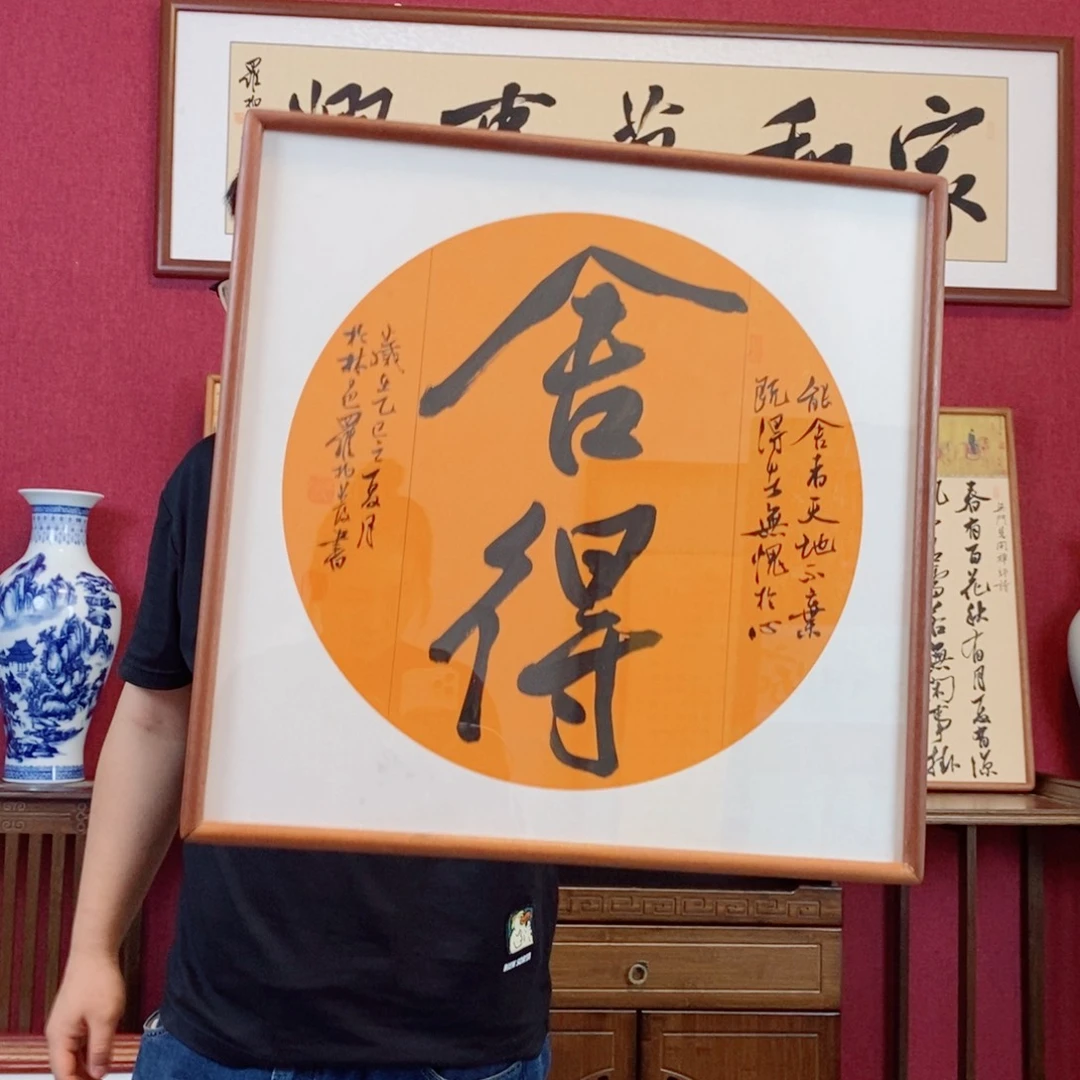 家和萬事興
舍得
能舍者天地不棄
既得無愧於心
歲在乙巳之夏月
於林邑羅書
無門慧開禪師詩
春有百花秋有月夏有涼
若無閑事掛